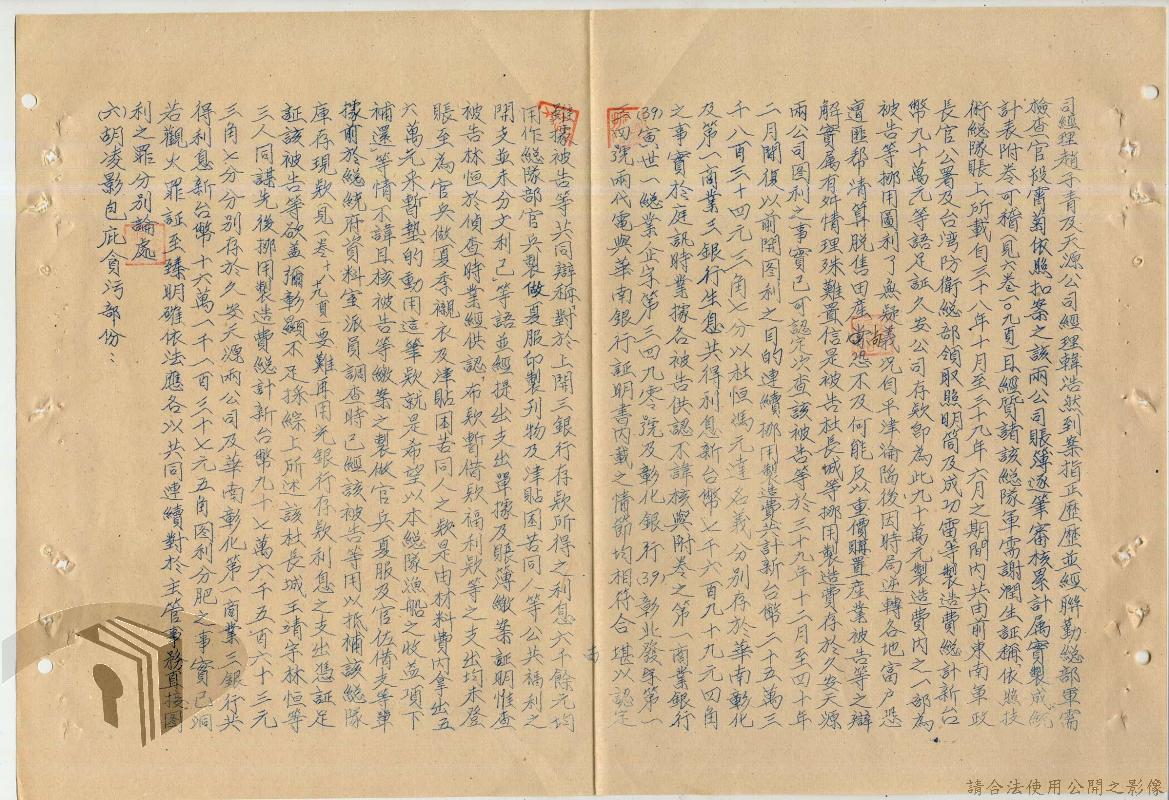 司經理趙子青及天源公司經理韓浩然到案指正歷歷並經聯勤總部軍需
檢查官段霄菊依照扣案之該兩公司賬簿逐筆審核累計屬實製成統
計表附卷可稽見六卷一〇九頁且經質諸該總隊軍需謝潤生証稱依照技
術總隊賬上所載自三十八年十月至三十九年六月之期間內共由前東南軍政
長官公署及台灣防衛總部領取照明筒及成功雷等製造費總計新台
幣九十萬元等語足証久安公司存款卽為此九十萬元製造費內之一部為
被告等挪用圖利了無疑義況自平津淪陷後因時局逆轉各地富戶恐
遭匪幫清算脫售田產尚恐不及何能反以重價購置產業被告等之辯
解實属有舛情理殊難置信是被告杜長城等挪用製造費存於久安天源
兩公司圖利之事實已可認定次查該被告等於三十九年十二月至四十年
二月間復以前開图利之目的連續挪用製造費共計新台幣二十五萬三
千八百三十四元三角七分以杜恒馮元達名義分别存於華南彰化
及第一商業三銀行生息共得利息新台幣七千六百九十九元四角
之事實於庭訊時業據各被告供認不諱核與附卷之第一商業銀行
(39)寅世一總業企字第三四九零號及彰化銀行(39)彰北發年第一
一一四號兩代電與華南銀行証明書內載之情節均相符合堪以認定
雖據被告等共同辯稱對於上開三銀行存款所得之利息六千餘元均
用作總隊部官兵製做夏服印製刊物及津貼困苦同人等公共福利之
開支並未分文利己等語並經提出支出單據及賬簿繳案証明惟查
被告林恒於偵查時業經供認布欵暫借欵福利欵等之支出均未登
賬至為官兵做夏季襯衣及津貼困苦同人之欵是由材料費內拿出五
六萬元来暫墊的動用這筆欵就是希望以本總隊漁船之收益項下
補還等情不諱且核被告等繳案之製做官兵夏服及官佐借支等單
據前於總統府資料室派員調查時已經該被告等用以抵補該總隊
庫存現欵(見一卷十八、十九頁)要難再用充銀行存欵利息之支出憑証足
証該被告等欲蓋彌彰顯不足採綜上所述該杜長城王清宇林恒等
三人同謀先後挪用製造費總計新台幣九十七萬六千五百六十三元
三角七分分别存於久安天源兩公司及華南彰化第一商業三銀行共
得利息新台幣十六萬一千一百三十七元五角图利分肥之事實已洞
若觀火罪証至臻明確依法應各以共同連續對於主管事務直接图
利之罪分別論處
(六)胡凌影包庇貪污部份：
請合法使用公開之影像